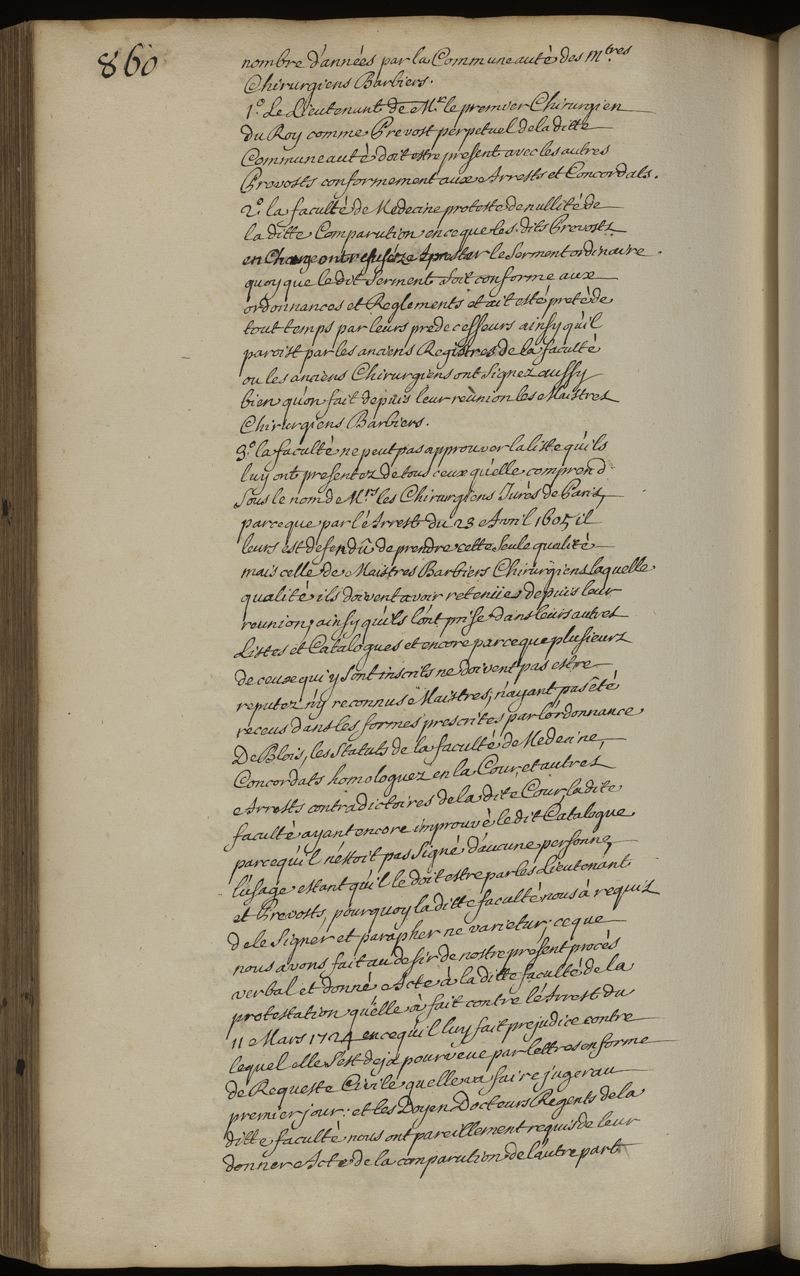 860
nombre d'années par la Communeautè des m.tres
Chirurgiens Barbiers.
1.o Le Lieutenant de M.r le premier Chirurgien
du Roy comme Prevost perpetuel de la ditte
Communeauté doit estre present avec les autres
Prevosts conformement aux Arrests et Concordats.
2.o la faculté de Medecine proteste de nullité de
la ditte Comparution en ce que les dits Prevosts
en Charge ont refuséz à prester le Serment ordinaire.
quoy que le dit Serment soit conforme aux
ordonnances et Reglements et ait esté preté de
tout temps par leurs predecesseurs ainsy qu'il
paroist par les anciens Registres de la faculté
ou les anciens Chirurgiens ont signez aussy
bien qu'on fait depuis leur reünion les Maistres
Chirurgiens Barbiers.
3.o la faculté ne peut pas approuver la liste qu'ils
luy ont presentez de tous ceux qu'elle comprend
sous le nom de M.rs les Chirurgiens Jurés de Paris,
parce que par l'Arrest du 23 Avril 1605 il
leurs est defendû de prendre cette seule qualité
mais celle de Maistres Barbiers Chirurgiens laquelle
qualité ils doivent avoir retenües depuis leur
reunion, ainsy qu'ils l'ont prise dans leurs autres
Listes et Catalogues et encore parce que plusieurs
de ceux qui y sont inscrits ne doivent pas estre
reputez n'y reconnus Maistres, n'ayant pas été
receus dans les formes prescrites par l'ordonnance
De Blois, les Statuts de la faculté de Medecine,
Concordats homologuez en la Cour, et autres
Arrests contradictoires de la dite Cour, la dite
faculté ayant encore improuvé le dit Catalogue
parce qu'il n'estoit pas signé d'aucune personne
l'usage estant qu'il le doit estre par les Lieutenant
et Prevosts, pourquoy la ditte faculté nous à requis
de le Signer et parapher ne varietur; ce que
nous avons fait au desir de nostre present procés
verbal et donné Acte à la ditte faculté de la
protestation qu'elle à fait contre l'Arrest du
11 Mars 1724 en ce qu'il luy fait prejudice contre
lequel elle s'est deja pourveüe par lettres en forme
de Requeste Civile quelle va faire juger au
premier jour: et les Doyen Docteurs Regents de la
ditte faculté nous ont pareillement requis de leur
donner Acte de la comparution de l'autre part